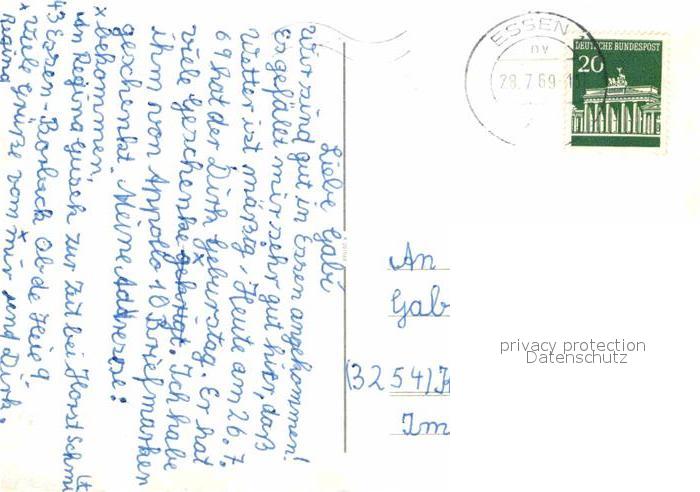 Liebe Gabi
Wir sind gut in Essen angekommen!
Es gefällt mir sehr gut hier, daß
Wetter ist mäßig, Heute am 26.7.
69 hat der Dirk Geburtstag. Er hat
viele Geschenke gekriegt. Ich habe
ihm von Appollo 10 Briefmarken
geschenkt. Meine Addresse:
x bekommen,
An Regina zur Zeit bei Horst Schmi
43 Essen-Borbeck
x Viele Grüße von mir und Dirk.
Regina
ESSEN
28.7.69
DEUTSCHE BUNDESPOST
20
An
Gab
(3254) H
Im
privacy protection
Datenschutz